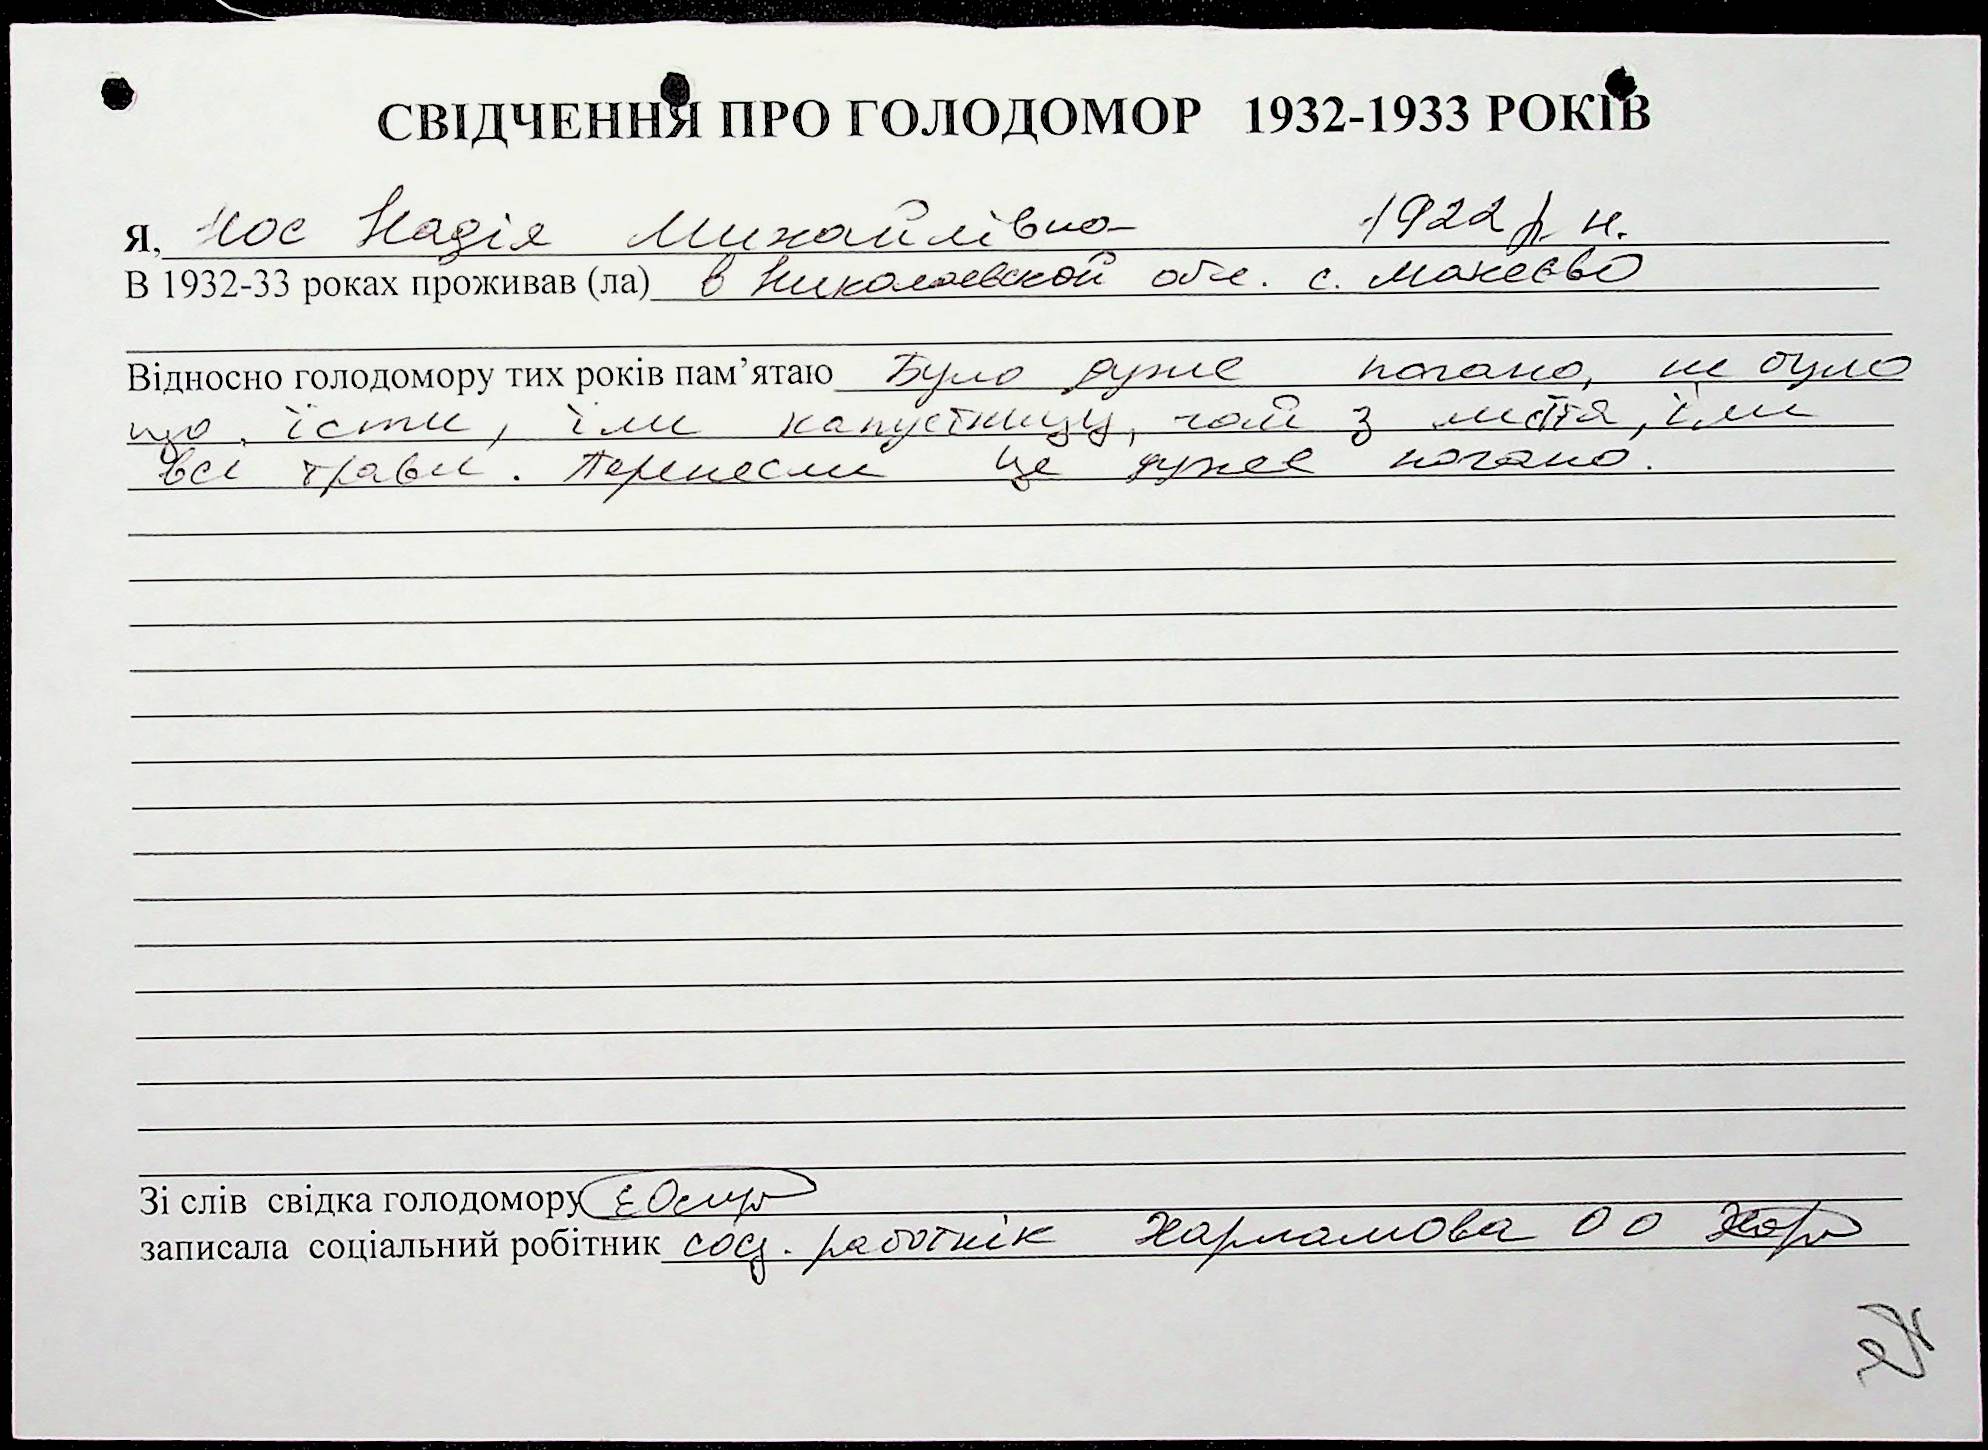 СВІДЧЕННЯ ПРО ГОЛОДОМОР 1932-1933 РОКІВ
Я, Нос Надія Михайлівна 1922 р. н.
В 1932-33 роках проживав (ла) в Николаевской обл. с. Макеєво
Відносно голодомору тих років пам’ятаю Було дуже погано, не було
що їсти, їли капустницу, чай з листя, їли
всі трави. Перенесли це дуже погано.
Зі слів свідка голодомору
записала соціальний робітник соц. работнік Харламова О О Хар